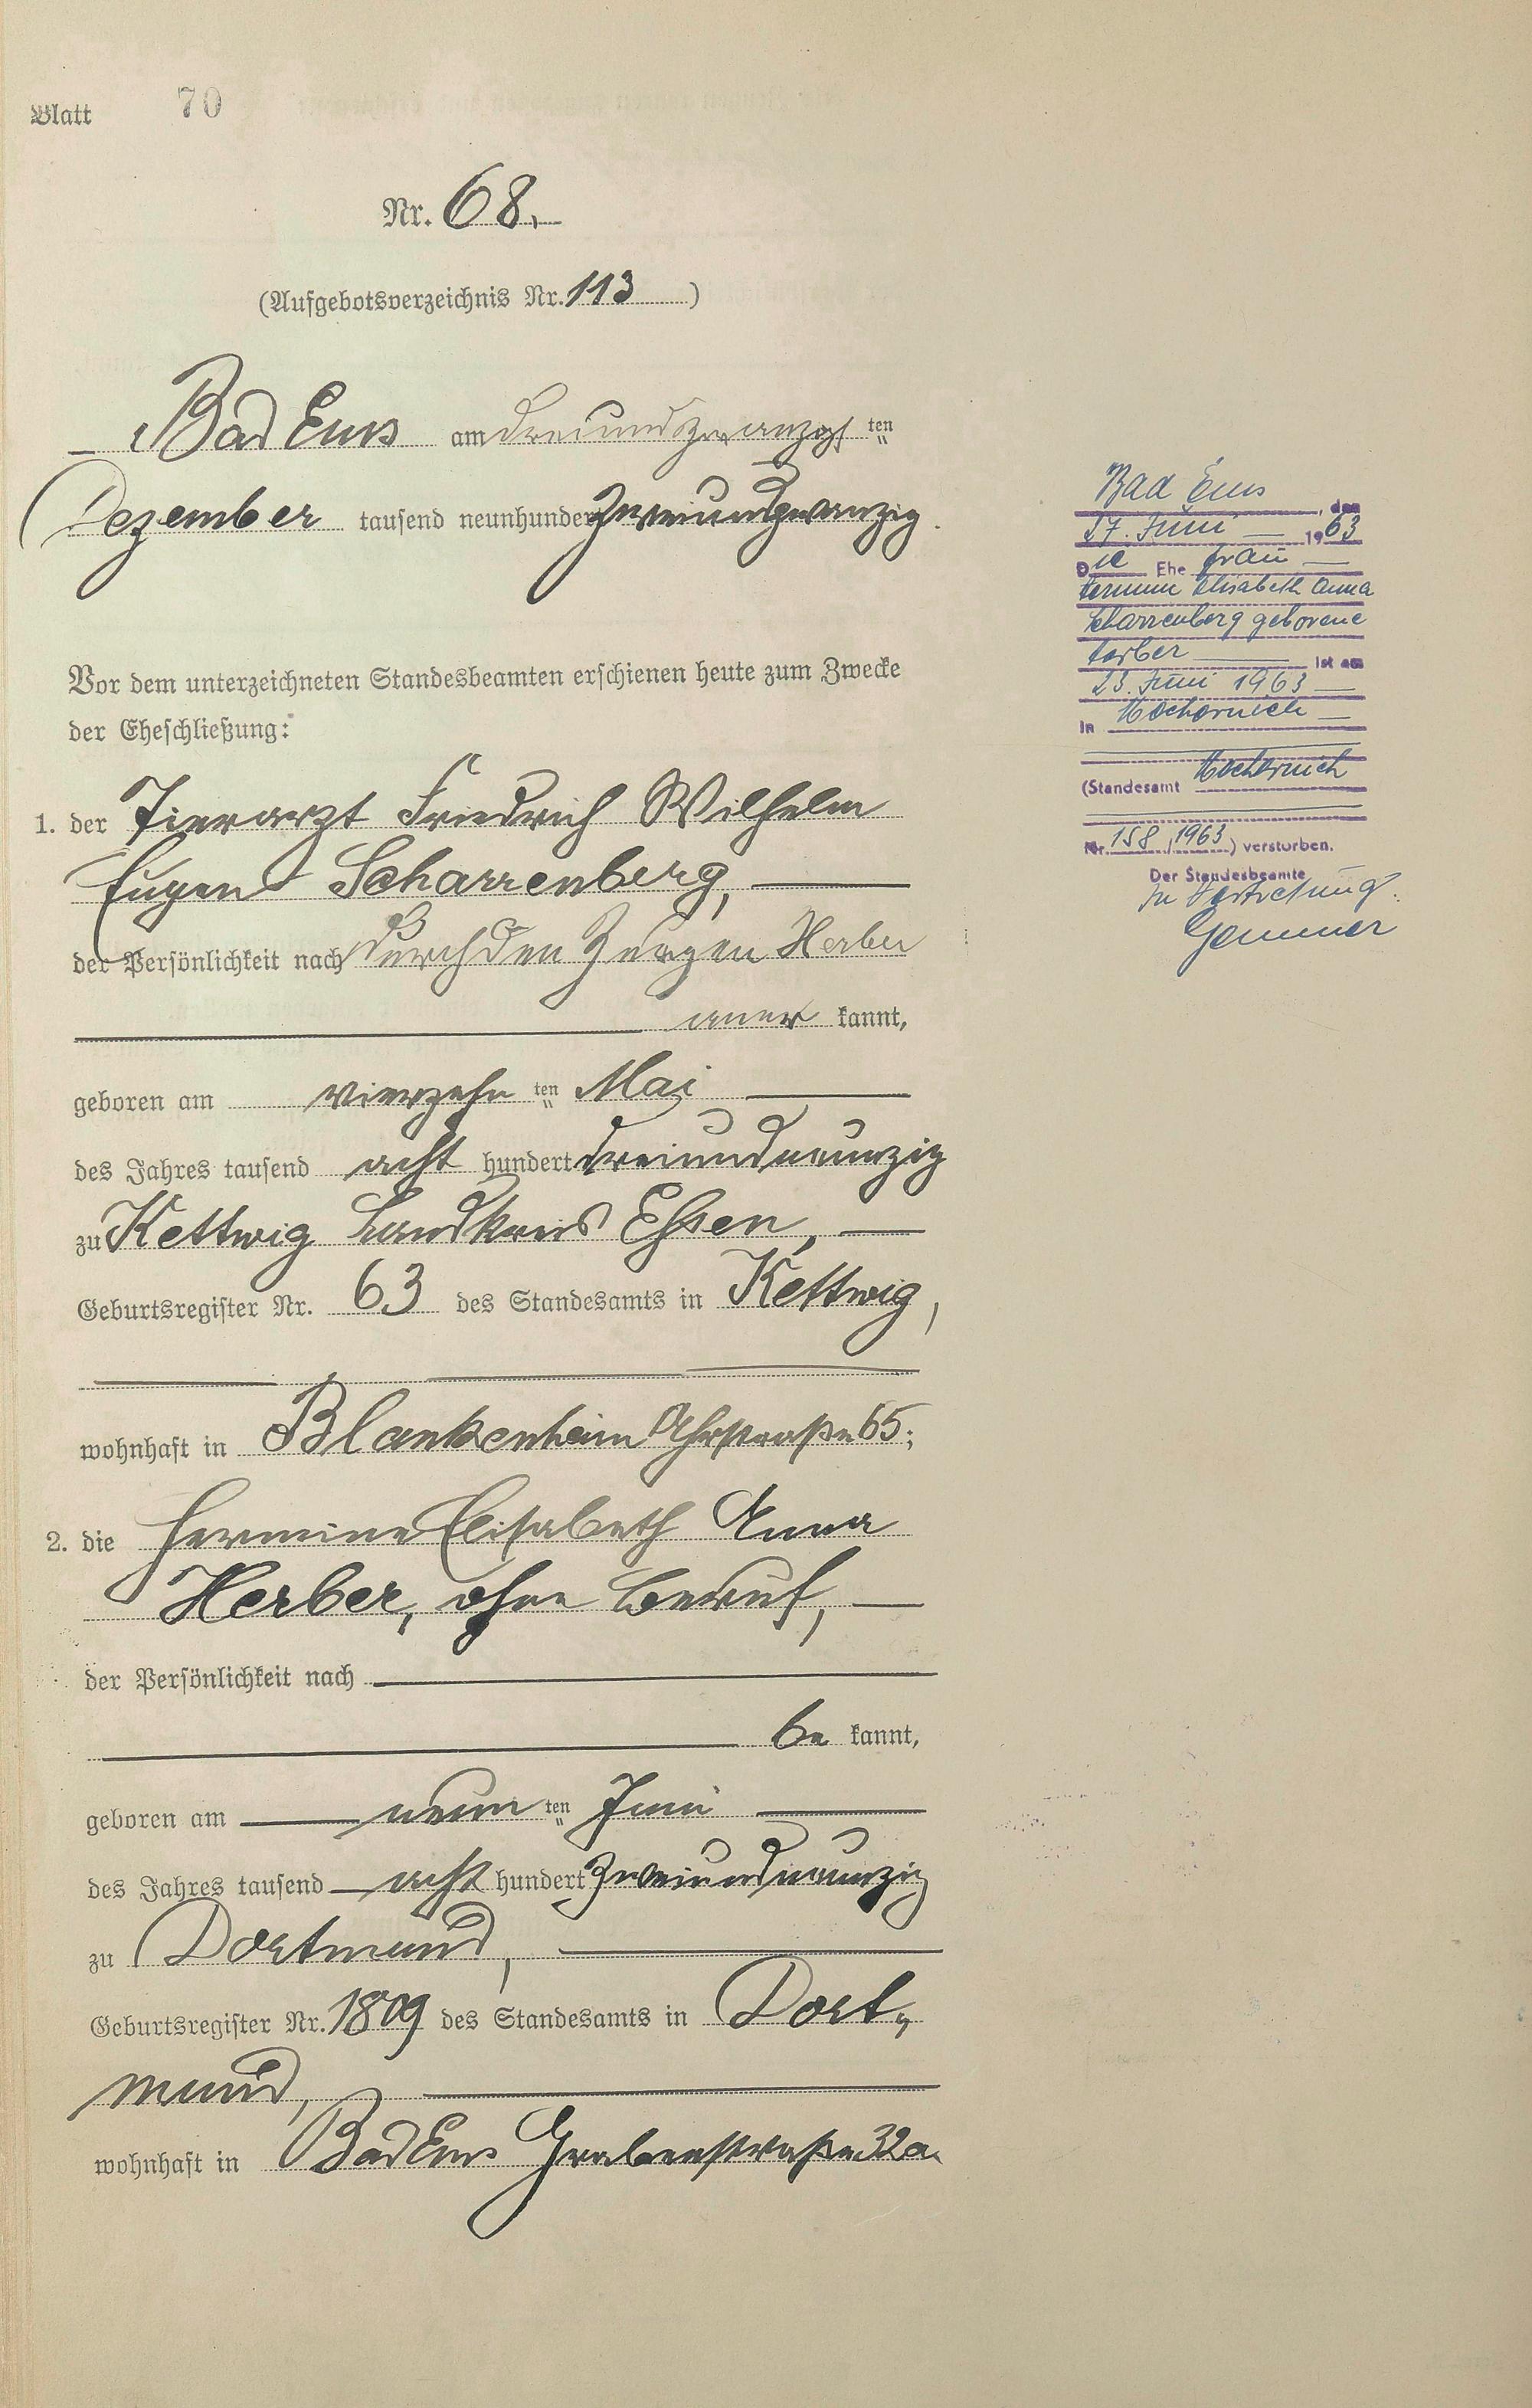 Blatt 70
Nr. 68.
(Aufgebotsverzeichnis Nr. 113)
Bad Ems am dreiundzwanzigsten
Dezember tausend neunhundert zweiundzwanzig.
Vor dem unterzeichneten Standesbeamten erschienen heute zum Zwecke
der Eheschließung:
1. der Tierarzt Friedrich Wilhelm
Eugen Scharrenberg,
der Persönlichkeit nach durch den Zeugen Herber
aner kannt,
geboren am vierzehn ten Mai
des Jahres tausend acht hundert dreiundneunzig
zu Kettwig Landkreis Essen,
Geburtsregister Nr. 63 des Standesamts in Kettwig,
wohnhaft in Blankenheim Ahrstraße 65;
2. die Hermine Elisabeth Anna
Herber, ohne Beruf,
der Persönlichkeit nach
be kannt,
geboren am neun ten Juni
des Jahres tausend acht hundert zweiundneunzig
zu Dortmund,
Geburtsregister Nr. 1809 des Standesamts in Dort-
mund,
wohnhaft in Bad Ems Grabenstraße 32a.
Bad Ems, den
27. Juni 1963
Die Ehe frau
Hermine Elisabeth Anna
Scharrenberg geborene
Herber ist am
23. Juni 1963
in Mechernich
(Standesamt Mechernich
Nr. 158/1963) verstorben.
Der Standesbeamte
In Vertretung